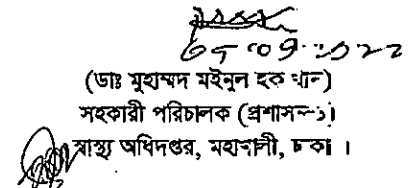 (ডাঃ মুহাম্মদ মইনুল হক খান)
সহকারী পরিচালক (প্রশাসন-১)।
স্বাস্থ্য অধিদপ্তর, মহাখালী, ঢাকা ।